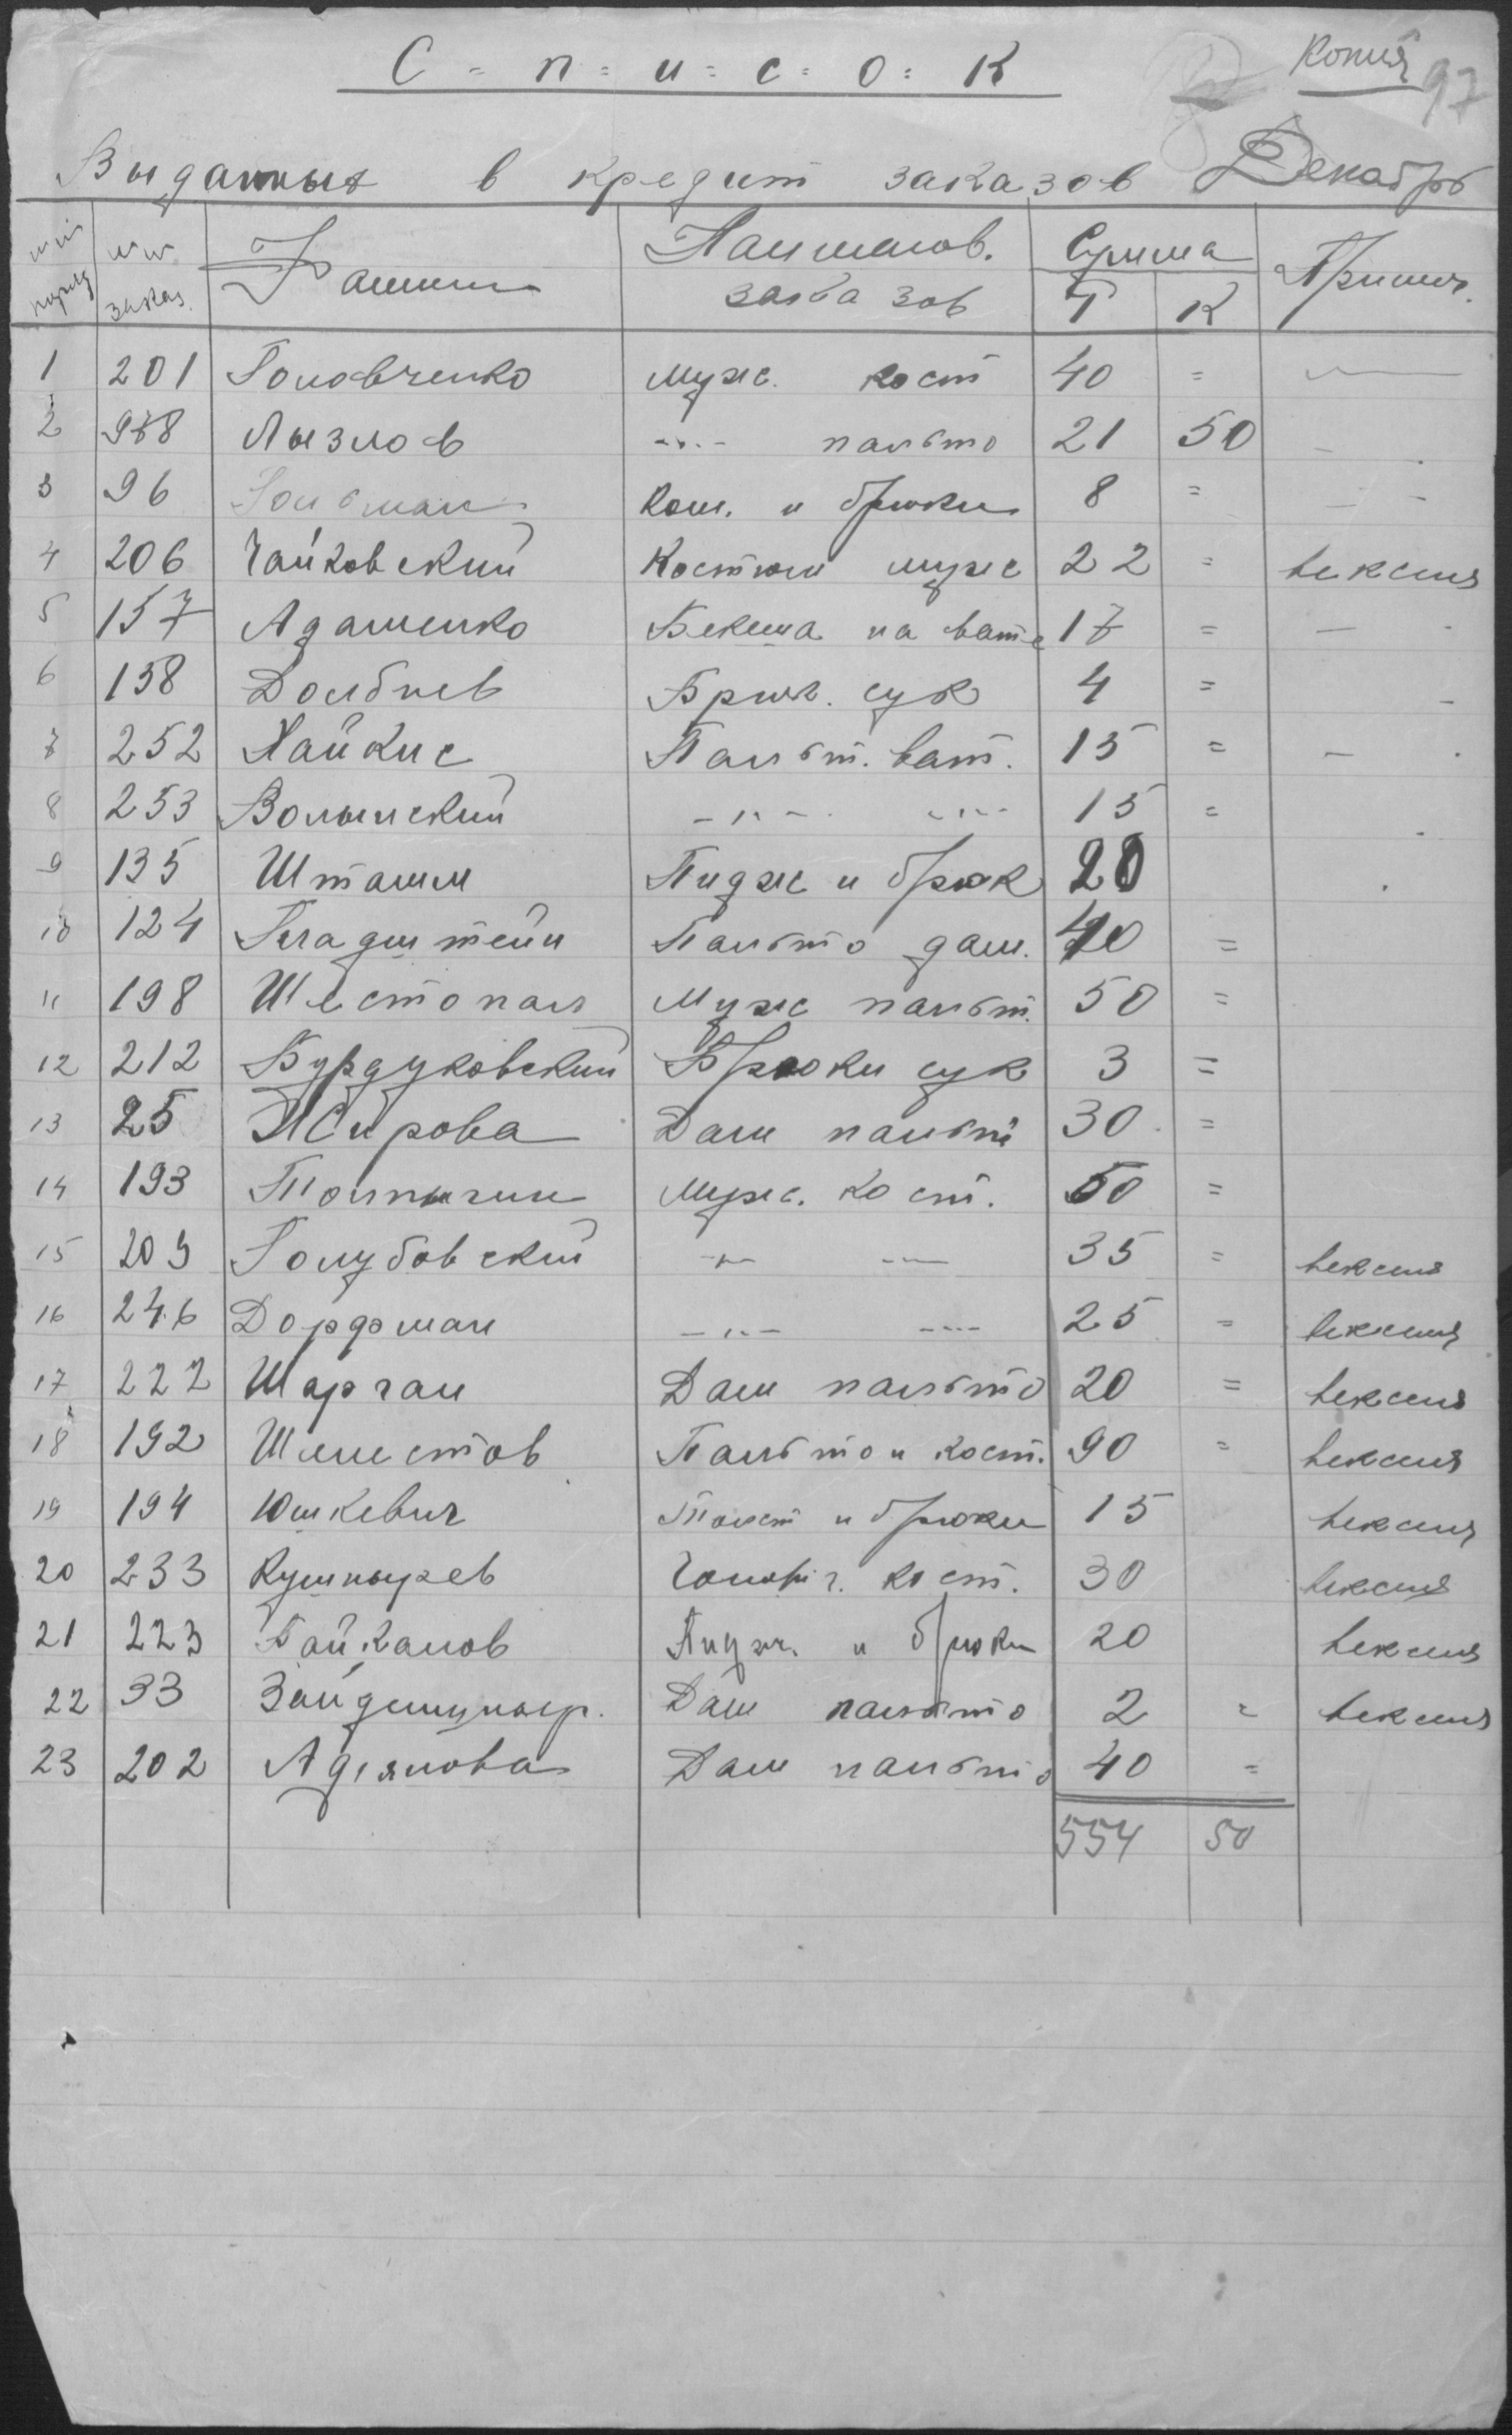 Копия
97
С = п = и = с = о = к
Выданных в кредит заказов Декабрь
№№ поряд №№ заказ. Фамили Наименов. заказов Сумма Т К Примеч.
1 201 Головченко мужс. кост 40 =
2 988 Лызлов -"- пальто 21 50
3 96 Гольман Кош. и брюки 8 =
4 206 Чайковский Костюм мужс 22 = вексиля
5 157 Адаменко Бекеша на вате 17 =
6 138 Долбнев Брюч. сук 4 =
7 252 Хайкис Пальт. ват. 15 =
8 253 Волынский -"- -"- 15 =
9 135 Штамм Пиджс и брюк 20
10 124 Гладштейн Пальто дам. 40 =
11 198 Шестопал Мужс пальт. 50 =
12 212 Бурдуковский Брюки сук 3 =
13 25 Жирова Дам пальт 30 =
14 193 Толпыгин мужс. кост. 50 =
15 209 Голубовский -"- -"- 35 = вексиля
16 246 Дорфман -"- -"- 25 = вексиля
17 222 Шарган Дам пальто 20 = вексиля
18 192 Шелестов Пальто и кост. 90 = вексиля
19 194 Юшкевич Толст и брюки 15 вексиля
20 233 Кушнырев кост. 30 вексиля
21 223 Байкалов Пиджч. и брюки 20 вексиля
22 33 Зайдешныр. Дам пальто 2 = вексиля
23 202 Адіянова Дам пальто 40 =
554 50